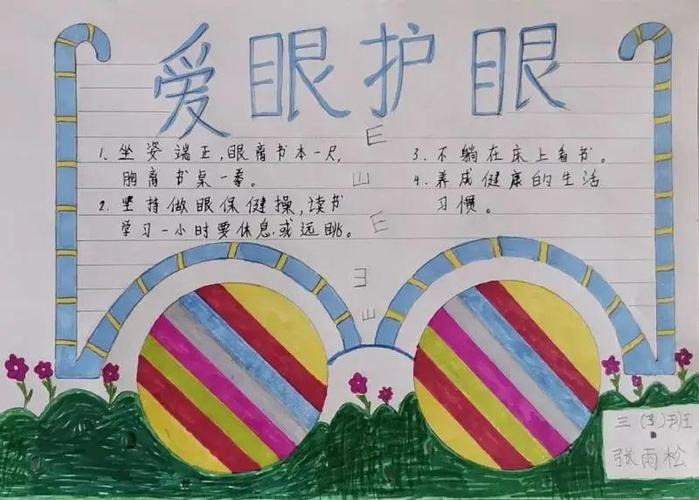 爱眼护眼
1. 坐姿端正,眼离书本一尺,
胸离书桌一拳。
2. 坚持做眼保健操,读书
学习一小时要休息或远眺。
3. 不躺在床上看书。
4. 养成健康的生活
习惯。
E
山
E
ヨ
山
三(3)班
张雨松